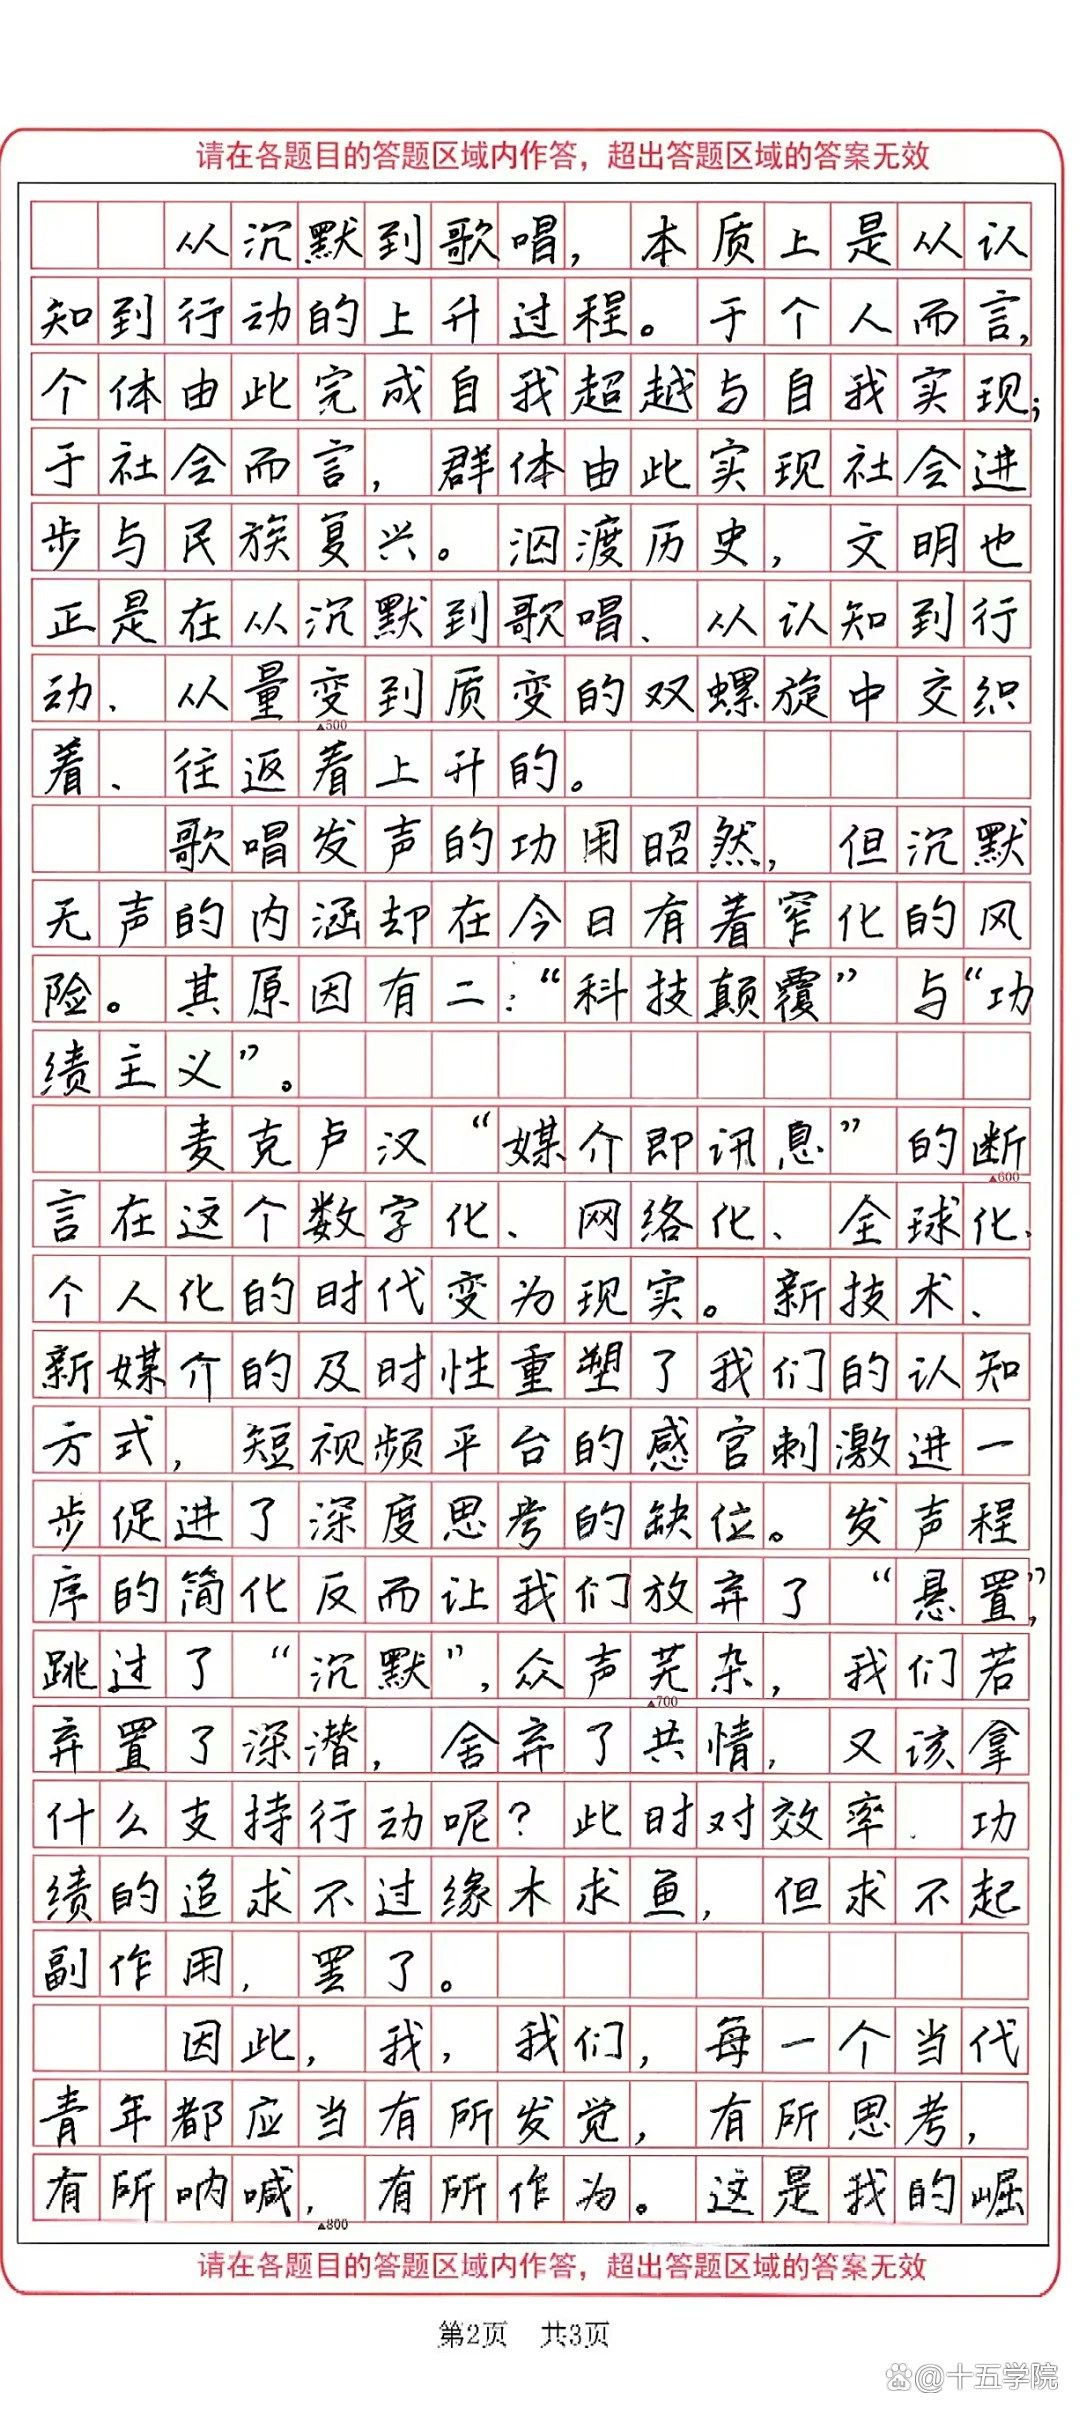 请在各题目的答题区域内作答，超出答题区域的答案无效
从沉默到歌唱，本质上是从认
知到行动的上升过程。于个人而言，
个体由此完成自我超越与自我实现；
于社会而言，群体由此实现社会进
步与民族复兴。泅渡历史，文明也
正是在从沉默到歌唱、从认知到行
动、从量变到质变的双螺旋中交织
▲500
着、往返着上升的。
歌唱发声的功用昭然，但沉默
无声的内涵却在今日有着窄化的风
险。其原因有二：“科技颠覆”与“功
绩主义”。
麦克卢汉“媒介即讯息”的断
▲600
言在这个数字化、网络化、全球化、
个人化的时代变为现实。新技术、
新媒介的及时性重塑了我们的认知
方式，短视频平台的感官刺激进一
步促进了深度思考的缺位。发声程
序的简化反而让我们放弃了“悬置”，
跳过了“沉默”，众声芜杂，我们若
▲700
弃置了深潜，舍弃了共情，又该拿
什么支持行动呢？此时对效率、功
绩的追求不过缘木求鱼，但求不起
副作用，罢了。
因此，我，我们，每一个当代
青年都应当有所发觉，有所思考，
有所呐喊，有所作为。这是我的崛
▲800
请在各题目的答题区域内作答，超出答题区域的答案无效
第2页 共3页
@十五学院